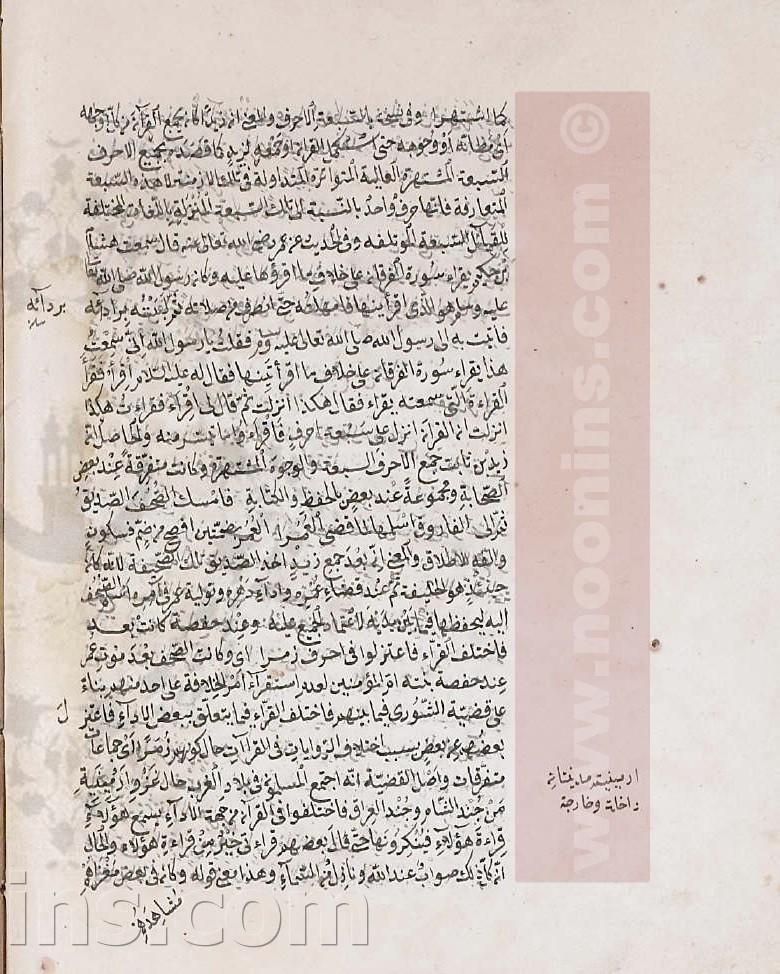 كما اشتهر وفي نسخة بالسبعة الاحرف والمعنى ان زيدا كان يجمع القرآن
حتى استكمل القرآن بجميع الاحرف
السبعة المشتهرة العالية المتواترة المتداولة في تلك الازمنة لا هذه السبعة
المتعارفة فانها حرف واحد بالنسبة الى تلك السبعة المنزلة باللغات المختلفة
للقبائل السبعة المؤتلفة وفي الحديث عن عمر رضي الله تعالى عنه قال سمعت هشام
بن حكيم يقراء سورة الفرقان على خلاف ما اقرؤها عليه وكان رسول الله صلى الله تعالى
عليه وسلم هو الذي اقرأنيها فامهلته حتى انصرف من صلاته ثم لببته بردائه
فاتيت به الى رسول الله صلى الله تعالى عليه وسلم فقلت يا رسول الله اني سمعت
هذا يقراء سورة الفرقان على خلاف ما اقرأتنيها فقال له عليه السلام اقرأ فقرأ
القراءة التي سمعته يقراء فقال هكذا انزلت ثم قال لي اقراء فقراءت هكذا
انزلت ان القرآن انزل على سبعة احرف فاقرأوا ما تيسر منه والحاصل ان
زيد بن ثابت جمع الاحرف السبعة والوجوه المشتهرة وكانت متفرقة عند بعض
الصحابة ومجموعة عند بعض بالحفظ والكتابة فامسك الصحف الصديق
ثم الى الفاروق اسلمها لما قضى العمرا العمر بضمتين افصح من ضم فسكون
والفه للاطلاق والمعنى انه بعد جمع زيد اخذ الصديق تلك الصحيفة لانه كان
حينئذ هو الخليفة ثم عند قضاء عمره واداء دهره وتولية عمر في امره اسلم الصحف
اليه ليحفظها فيما بين يديه لاعتماد الجميع عليه وعند حفصة كانت بعد
فاختلف القراء فاعتزلوا في احرف زمرا اي وكانت الصحف بعد موت عمر
عند حفصة بنته ام المؤمنين لعدم استقرار امر الخلافة على احد منهم بناء
على قضية الشورى فيما بينهم فاختلف القراء فيما يتعلق ببعض الاداء فاعتزل
بعضهم عن بعض بسبب اختلاف الروايات في القراآت حال كونهم زمرا اي جماعات
متفرقات واصل القضية انه اجتمع المسلمون في بلاد الغرب حال غزو ارمينية
من جند الشام وجند العراق فاختلفوا في القرآن من جهة الاداء يسمع هؤلاء
قراءة هؤلاء فينكرونها حتى قال بعضهم قراءتي خير من قراءة هؤلاء والحال
ان كل ذلك صواب عند الله ونازل من السماء وهذا معنى قوله وكان في بعض مغزاهم
مشاهدهم
بردائه
ل
داخلة وخارجة
www.noonins.com ©
ins.com